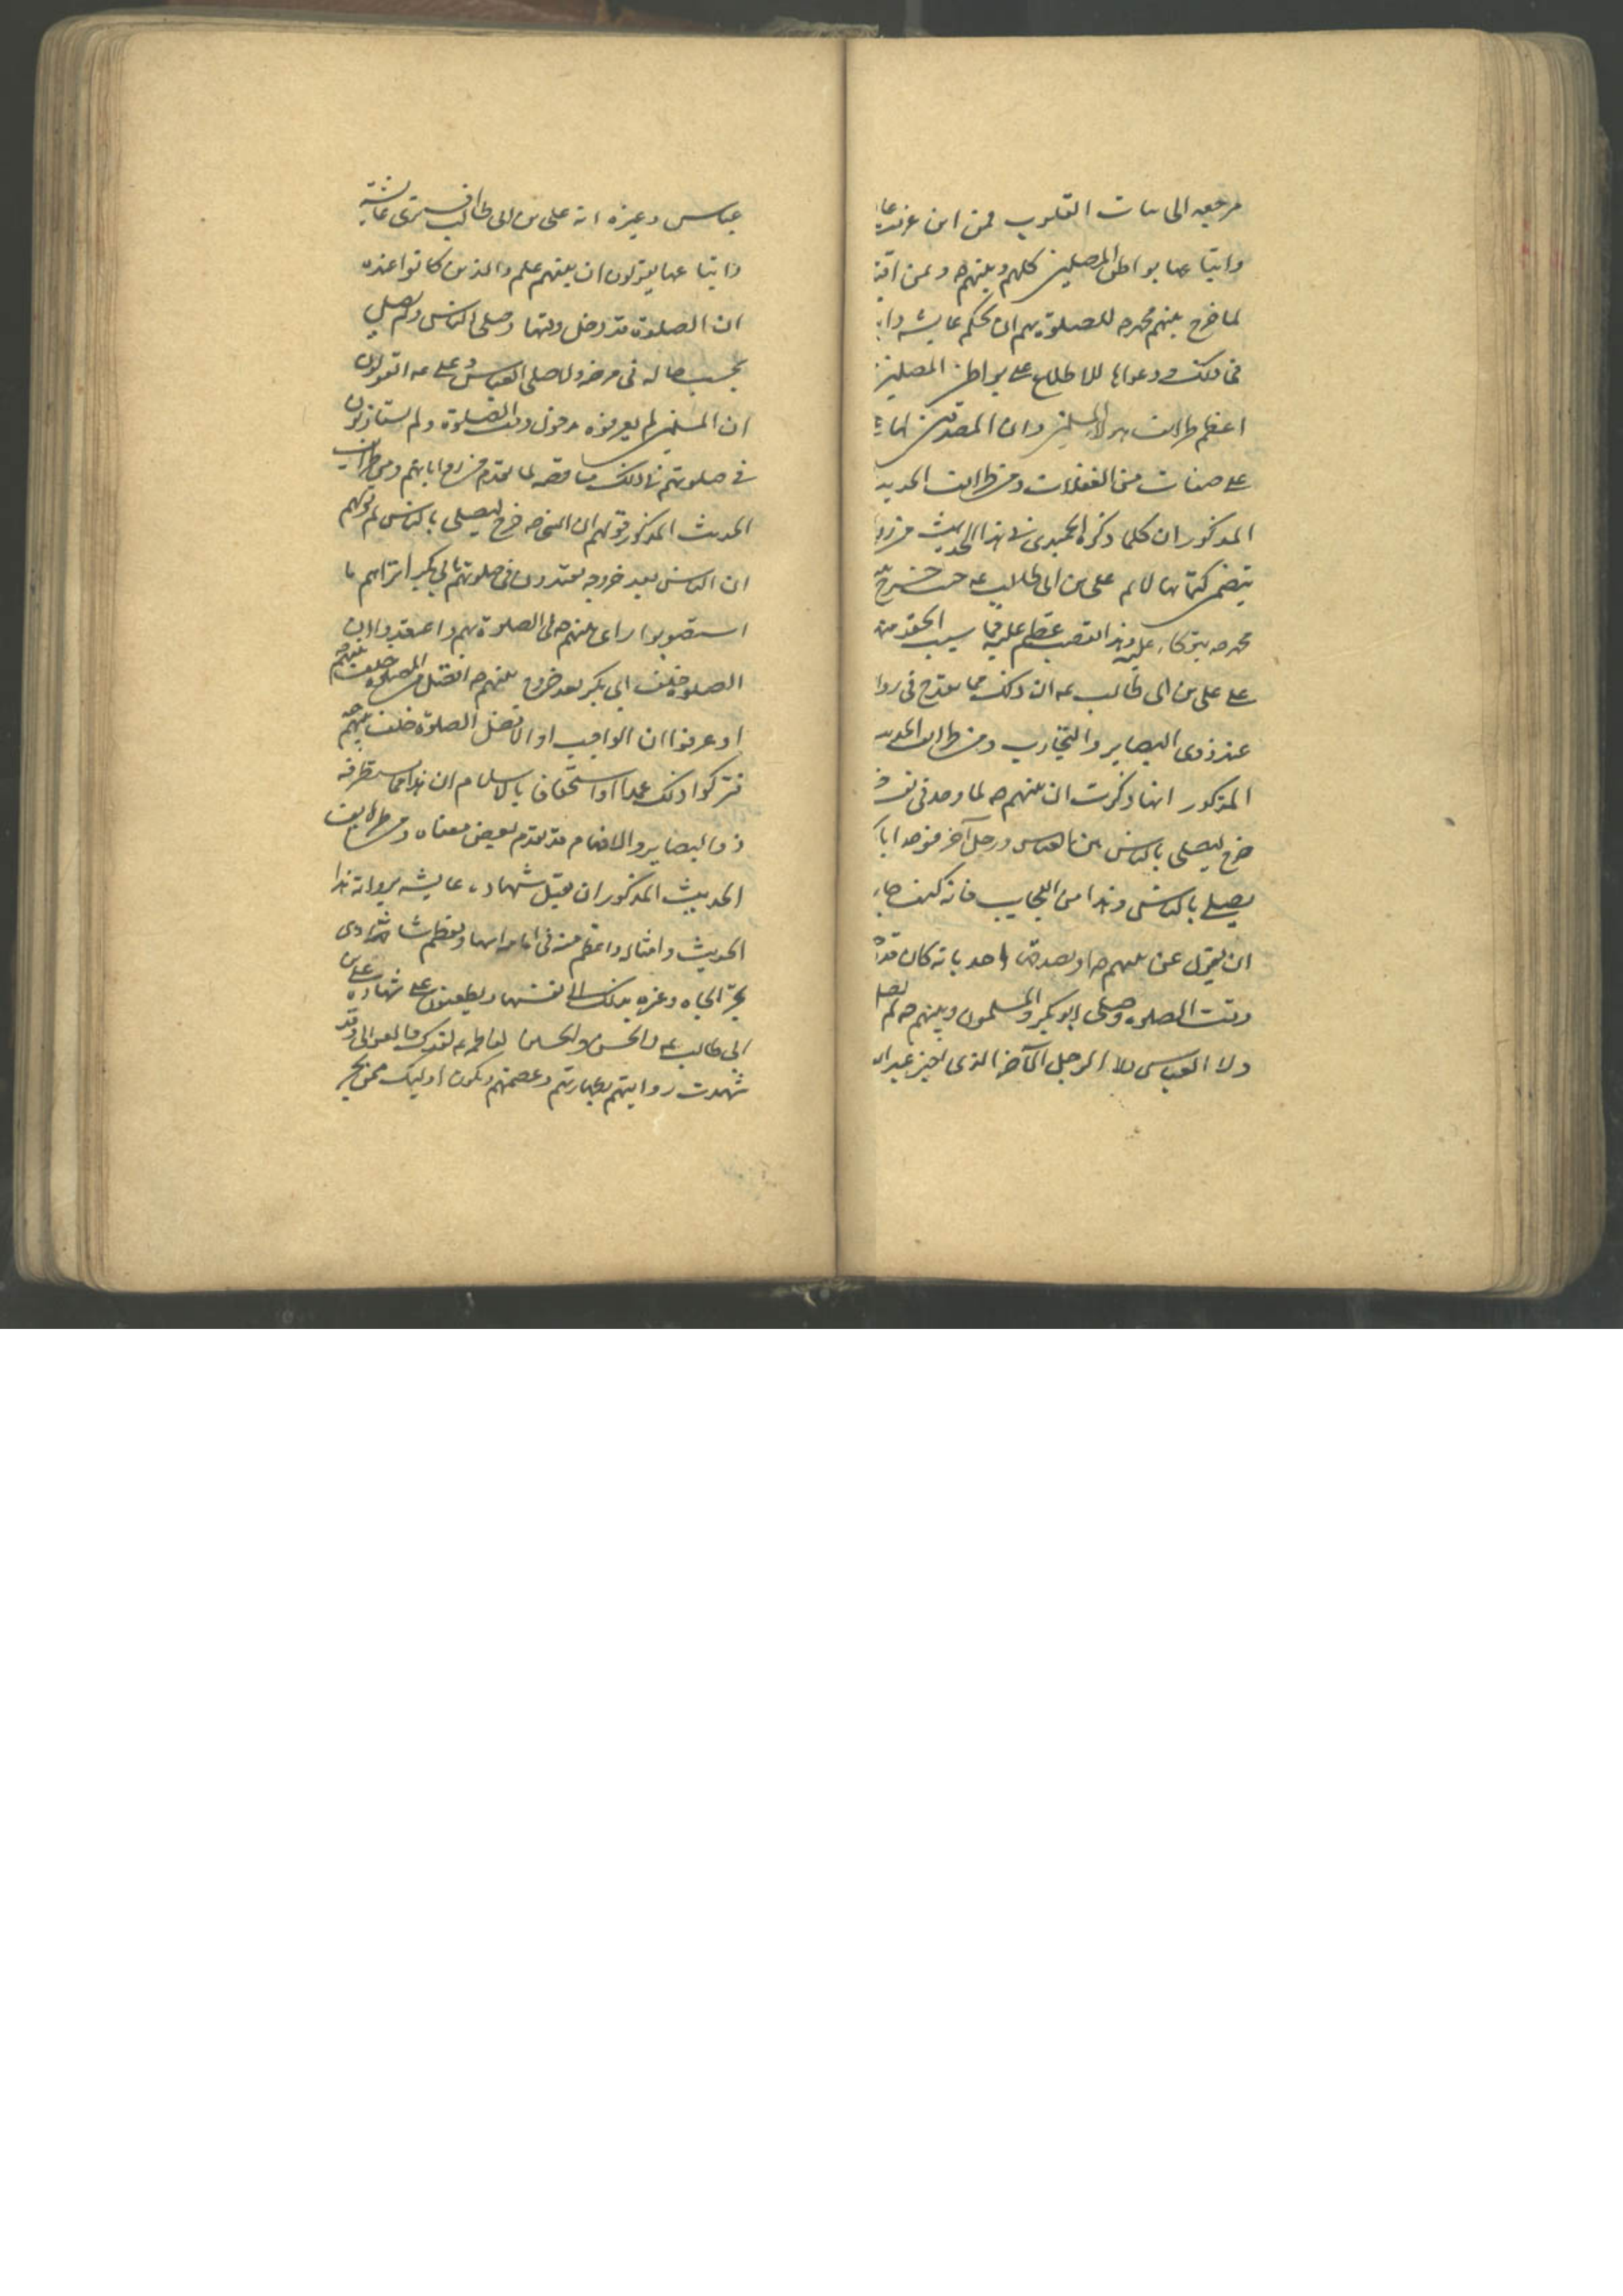 مرجعه الى نيات القلوب فمن اين عرفت
واتباعها بواطن المصلين كلهم ونبيهم ص ومن
لما خرج نبيهم محمد ص للصلوة بهم ان تحكم عايشه
فى ذلك ودعواها للاطلاع على بواطن المصلين
اعظم طرائف هولاء المسلمين وان المصدقين لها
على صفات من الغفلات ومن طرائف الحديث
المذكور ان كلما ذكره الحميدى فى هذا الحديث من
يتضمن كتمانها لاسم على بن ابى طالب ع حيث خرج
محمد ص يتوكاء عليه وهذا تعصب عظيم عليه فما سبب الحقد منها
على على بن ابى طالب ع ان ذلك مما يقدح فى
عند ذوى البصاير والتجارب ومن طرائف الحديث
المذكور انها ذكرت ان نبيهم ص لما وجد فى نفسه
خرج ليصلى بالناس بين العباس ورجل آخر فوجد ابا
يصلى بالناس وهذا من العجايب فانه كيف جاز
ان يقول عن نبيهم ص او يصدق احد بانه كان قد
وقت الصلوه وصلى ابو بكر والمسلمون ونبيهم ص لم يصل
ولا العباس ولا الرجل الآخر الذى اخبر عبد الله
عباس وغيره انه على بن ابى طالب افترى عائشة
واتباعها يقولون ان نبيهم علم والذين كانوا عنده
ان الصلوة قد دخل وقتها وصلى الناس ولم يصل
بحسب حاله فى مرضه ولا صلى العباس وعلى ع او يقولون
ان المسلمين لم يعرفوه دخول وقت الصلوة ولم يستاذنوه
فى صلوتهم فان ذلك مناقضه لما تقدم من رواياتهم ومن طرائف
الحديث المذكور قولهم ان النبى ص خرج ليصلى بالناس ثم قولهم
ان الناس بعد خروجه يقتدون فى صلوتهم بابى بكر اتراهم ما
استصوبوا راى نبيهم ص فى الصلوة بهم واعتقدوا ان
الصلوه خلف ابى بكر بعد خروج نبيهم ص افضل من الصلوه خلف نبيهم ص
او عرفوا ان الواجب او الافضل الصلوة خلف نبيهم ص
فتركوا ذلك عمدا او استخفافا بالاسلام ان هذا مما يستطرفه
ذوا البصاير والافهام قد تقدم بعض معناه ومن طرايف
الحديث المذكور ان تقبل شهادة عايشه بروايه هذا
الحديث وامثاله واعظم منه فى امامه ابيها وتعظم شانه
بجر الجاه وغيره بذلك الى نفسها ويطعنون على شهاده على بن
ابى طالب ع والحسن والحسين لفاطمه ع بفدك والعوالى وقد
شهدت روايتهم بطهارتهم وعصمتهم ويكون اوليك ممن يجر